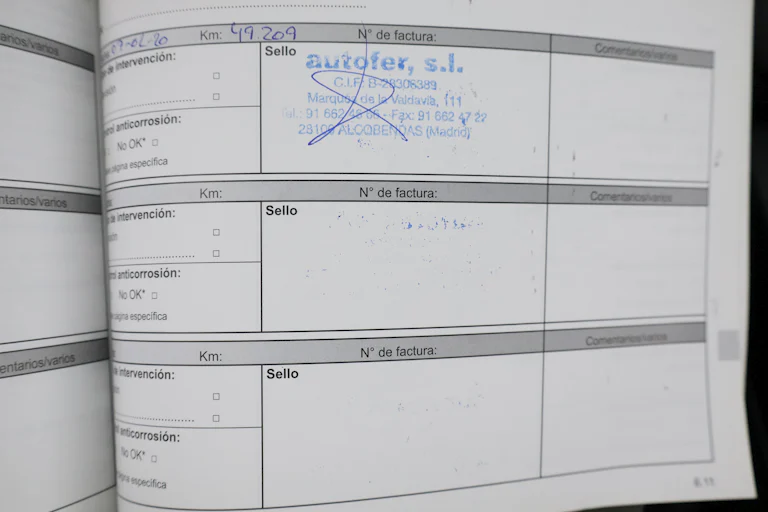 arios/varios
07-02-20 Km: 49.209 N° de factura: Comentarios/varios
de intervención: Sello
autofer, s.l.
C.I.F. B-28306389
Marqués de la Valdavia, 111
Tel.: 91 662 48 66 - Fax: 91 662 47 22
28100 ALCOBENDAS (Madrid)
anticorrosión:
No OK* □
página específica
ntarios/varios
Km: N° de factura: Comentarios/varios
de intervención: Sello
anticorrosión:
No OK* □
página específica
entarios/varios
Km: N° de factura: Comentarios/varios
de intervención: Sello
anticorrosión:
No OK* □
página específica
6.11